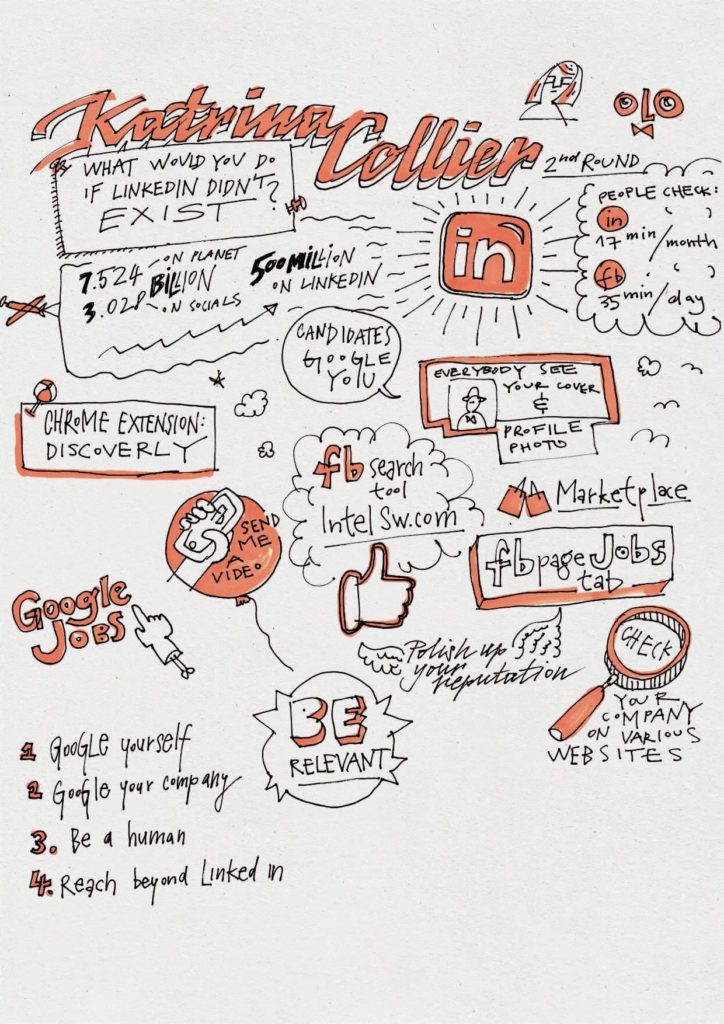 Katrina
Collier
2nd ROUND
OLO
WHAT WOULD YOU DO
IF LINKEDIN DIDN'T
EXIST?
PEOPLE CHECK:
in
17 min/month
fb
35 min/day
in
7.524 BILLION ON PLANET
3.028 ON SOCIALS
500 MILLION
ON LINKEDIN
CANDIDATES
GOOGLE
YOU
EVERYBODY SEE
YOUR COVER
&
PROFILE
PHOTO
CHROME EXTENSION:
DISCOVERLY
fb search
tool
Intel Sw.com
Marketplace
SEND
ME
A
VIDEO
fb page Jobs
tab
Google
JOBS
Polish up
your reputation
CHECK
YOUR
COMPANY
ON VARIOUS
WEBSITES
BE
RELEVANT
1 GOOGLE yourself
2 Google your company
3. Be a human
4. Reach beyond Linked in